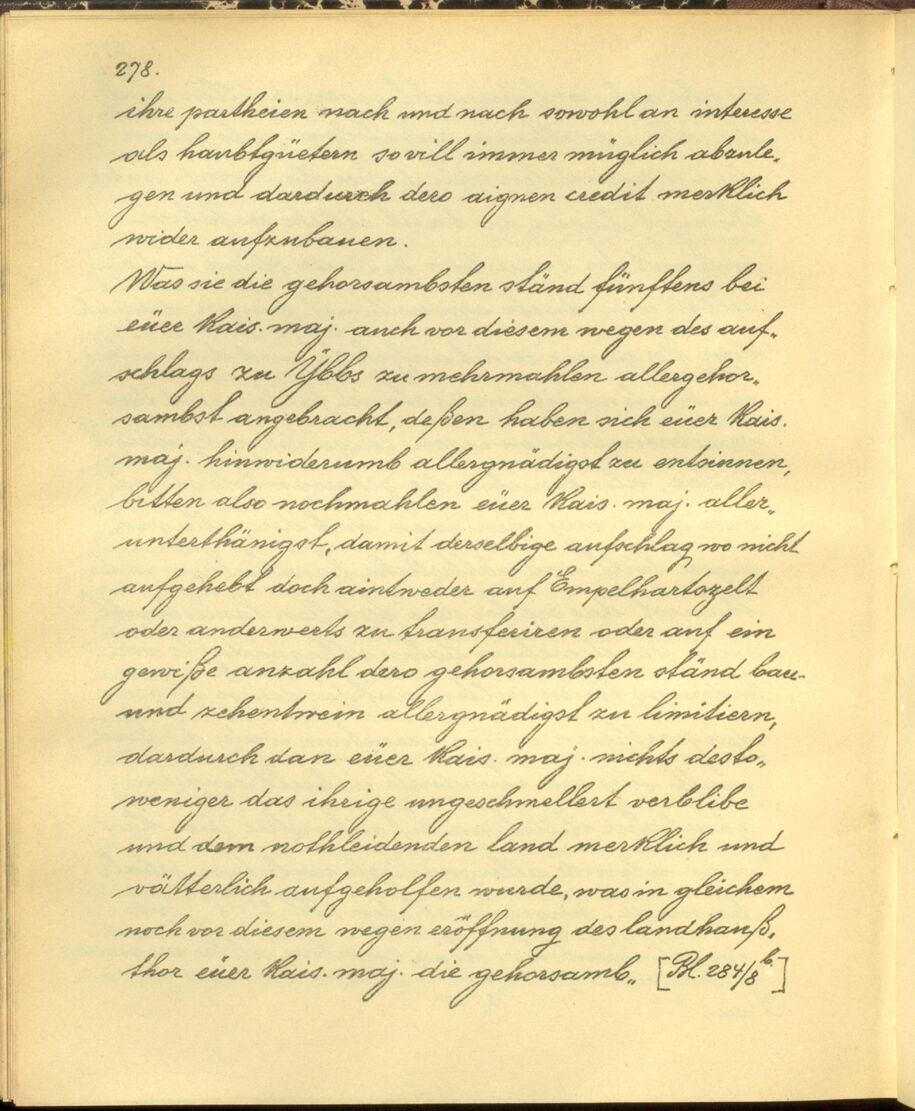 278.
ihre partheien nach und nach sowohl an interesse
als haubtgüetern sovill immer müglich abzule„
gen und dardurch dero aignen credit merklich
wider aufzubauen.
Was sie die gehorsambsten ständ fünftens bei
eüer Kais. maj. auch vor diesem wegen des auf„
schlags zu Ÿbbs zu mehrmahlen allergehor„
sambst angebracht, deßen haben sich eüer Kais.
maj. hinwiderumb allergnädigst zu entsinnen,
bitten also nochmahlen eüer Kais. maj. aller„
unterthänigst, damit derselbige aufschlag wo nicht
aufgehebt doch aintweder auf Empelhartszelt
oder anderwerts zu transferiren oder auf ein
gewiße anzahl dero gehorsambsten ständ bau-
und zehentwein allergnädigst zu limitiern,
dardurch dan eüer Kais. maj. nichts desto„
weniger das ihrige ungeschmellert verblibe
und dem nothleidenden land merklich und
vätterlich aufgeholfen wurde, was in gleichem
noch vor diesem wegen eröffnung des landhauß„
thor eüer Kais. maj. die gehorsamb„ [Bl. 284/8 b.]